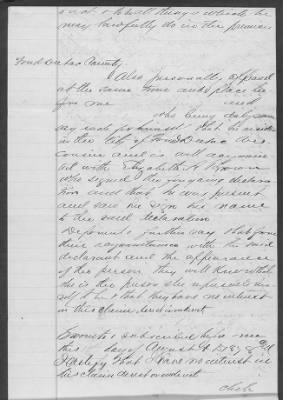 and to do all things which he
may lawfully do in the premises
Fond du Lac County
Also personally appeared
at the same time and place be
fore me and
who being duly sworn
say each for himself that he resides
in the City of Fond Du Lac Wis
consin and is well acquain
ted with Elizabeth A
who signed the foregoing declara
tion and that he was present
and saw her sign his name
to the said declaration
Deponents further say that from
their acquaintance with the said
declarant and the appearance
of the person they well know that
she is the person she represents him
self to be & that they have no interest
in this claim direct or indirect
Sworn to & subscribed before me
this day of August A D
I certify that I have no interest in
this claim direct or indirect
Clerk